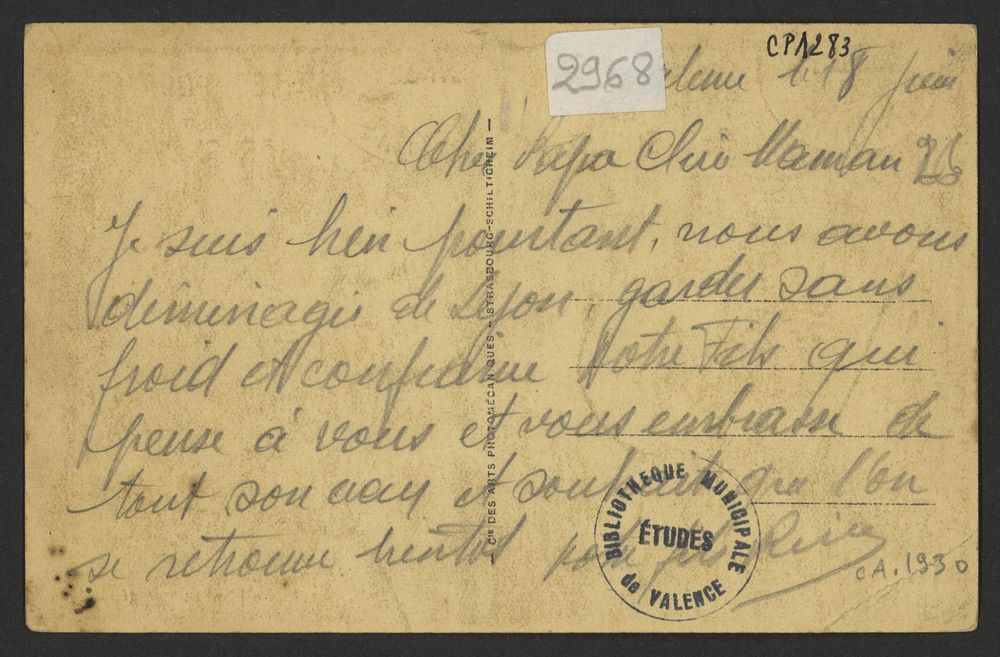 CP1283
2968
le 18 juin
Cher Papa Chère Maman
Je suis bien pourtant, nous avons
déménagés de Lyon, gardez sans
froid et confiance Votre Fils qui
pense à vous et vous embrasse de
tout son cœur et souhait que l'on
se retrouve bientôt
Cie DES ARTS PHOTOMÉCANIQUES - STRASBOURG-SCHILTIGHEIM
BIBLIOTHEQUE MUNICIPALE
ÉTUDES
de VALENCE
CA. 1930